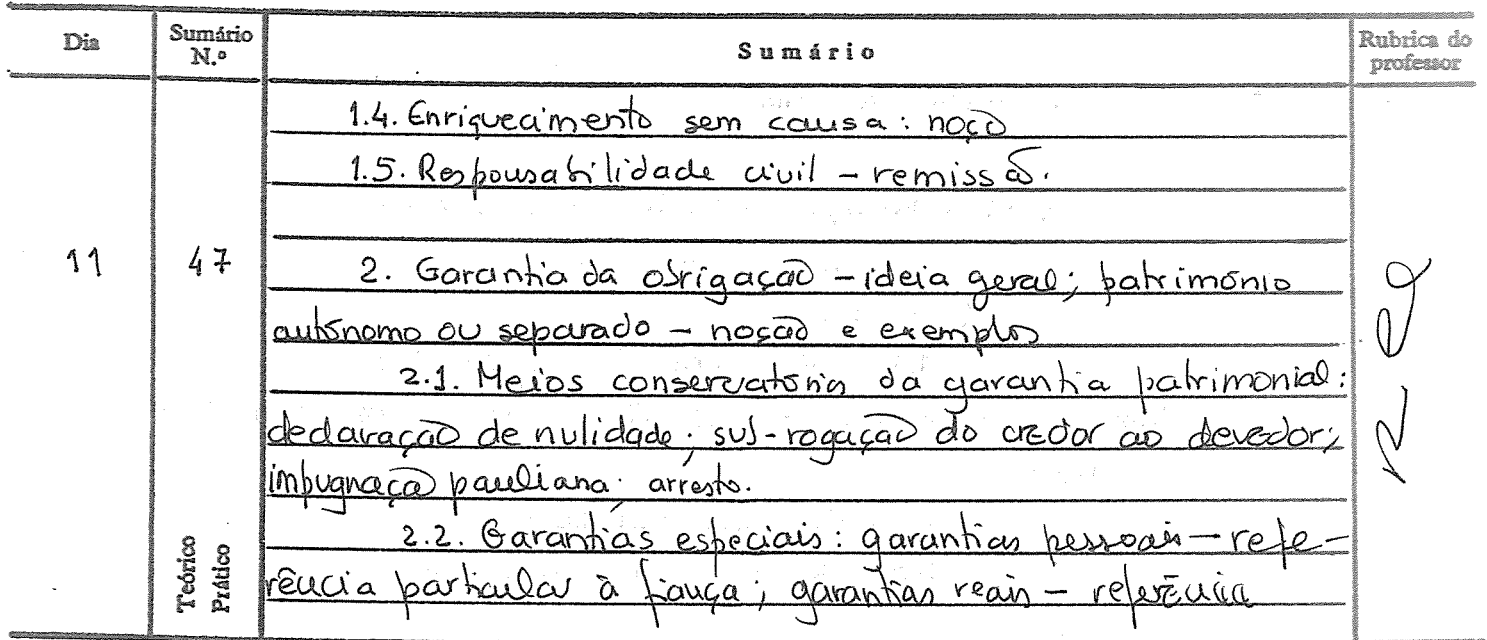 Dia
Sumário N.º
Sumário
Rubrica do professor
1.4. Enriquecimento sem causa: noção
1.5. Responsabilidade civil – remissão.
11
47
2. Garantia da obrigação – ideia geral; património
autónomo ou separado – noção e exemplos
2.1. Meios conservatórios da garantia patrimonial:
declaração de nulidade; sub-rogação do credor ao devedor;
impugnação pauliana; arresto.
2.2. Garantias especiais: garantias pessoais – refe-
rência particular à fiança; garantias reais – referência
Teórico
Prático